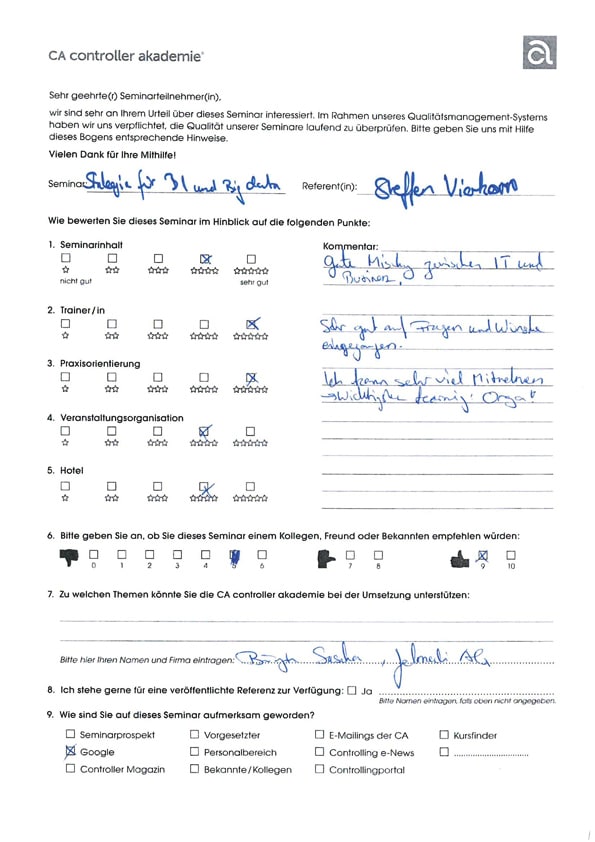 CA controller akademie®
Sehr geehrte(r) Seminarteilnehmer(in),
wir sind sehr an Ihrem Urteil über dieses Seminar interessiert. Im Rahmen unseres Qualitätsmanagement-Systems
haben wir uns verpflichtet, die Qualität unserer Seminare laufend zu überprüfen. Bitte geben Sie uns mit Hilfe
dieses Bogens entsprechende Hinweise.
Vielen Dank für Ihre Mithilfe!
Seminar: Strategie für BI und Big data Referent(in): Steffen Vierkorn
Wie bewerten Sie dieses Seminar im Hinblick auf die folgenden Punkte:
1. Seminarinhalt
nicht gut sehr gut
Kommentar:
Gute Mischg zwischen IT und
Business.
2. Trainer/in
Sehr gut auf Fragen und Wünsche
eingegangen.
3. Praxisorientierung
Ich kann sehr viel Mitnehmen
→ Wichtigste Learning: Orga!
4. Veranstaltungsorganisation
5. Hotel
6. Bitte geben Sie an, ob Sie dieses Seminar einem Kollegen, Freund oder Bekannten empfehlen würden:
0 1 2 3 4 5 6 7 8 9 10
7. Zu welchen Themen könnte Sie die CA controller akademie bei der Umsetzung unterstützen:
Bitte hier Ihren Namen und Firma eintragen: Sascha, AG
8. Ich stehe gerne für eine veröffentlichte Referenz zur Verfügung: Ja
Bitte Namen eintragen, falls oben nicht angegeben.
9. Wie sind Sie auf dieses Seminar aufmerksam geworden?
Seminarprospekt Vorgesetzter E-Mailings der CA Kursfinder
Google Personalbereich Controlling e-News
Controller Magazin Bekannte/Kollegen Controllingportal